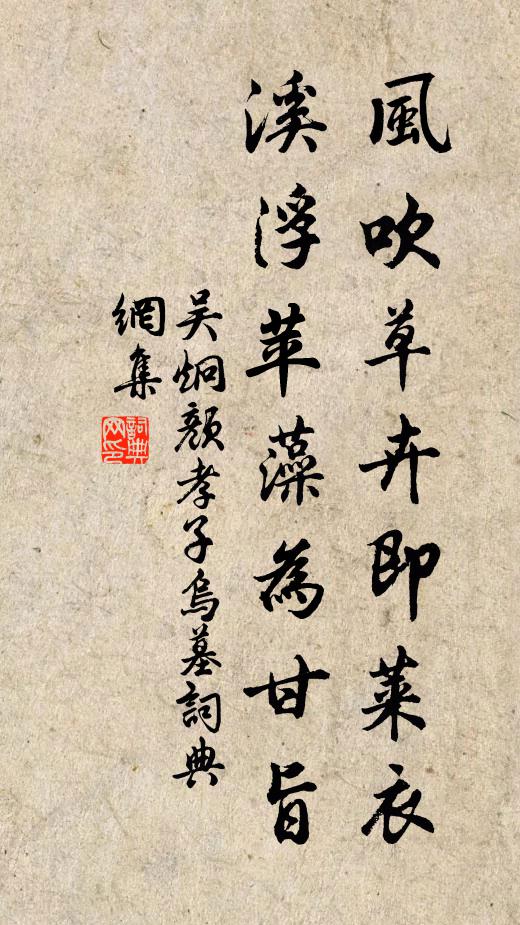 風吹草卉即萊衣
溪浮苹藻為甘旨
吴炯顏孝子烏墓詞典
網集
詞典
网印